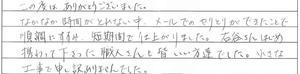 この度は ありがとうございました。
なかなか時間がとれない中、メールでのやりとりができたことで
順調にすすみ、短期間で仕上がりました。石谷さんはじめ
携わって下さった職人さんと皆いい方達でした。小さな
工事で申し訳ありませんでした。